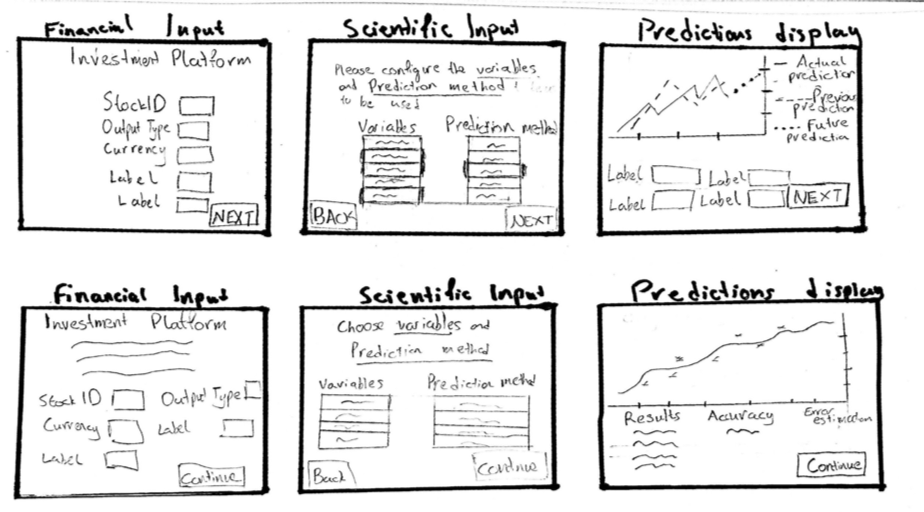 Financial Input
Investment Platform
StockID
Output Type
Currency
Label
Label
NEXT
Scientific Input
Please configure the variables
and Prediction method
to be used
Variables Prediction method
BACK
NEXT
Predictions display
Actual
prediction
Previous
prediction
Future
prediction
Label Label
Label Label
NEXT
Financial Input
Investment Platform
Stock ID Output Type
Currency Label
Label
Continue
Scientific Input
Choose variables and
Prediction method
Variables Prediction method
Back
Continue
Predictions display
Results Accuracy Error
estimation
Continue